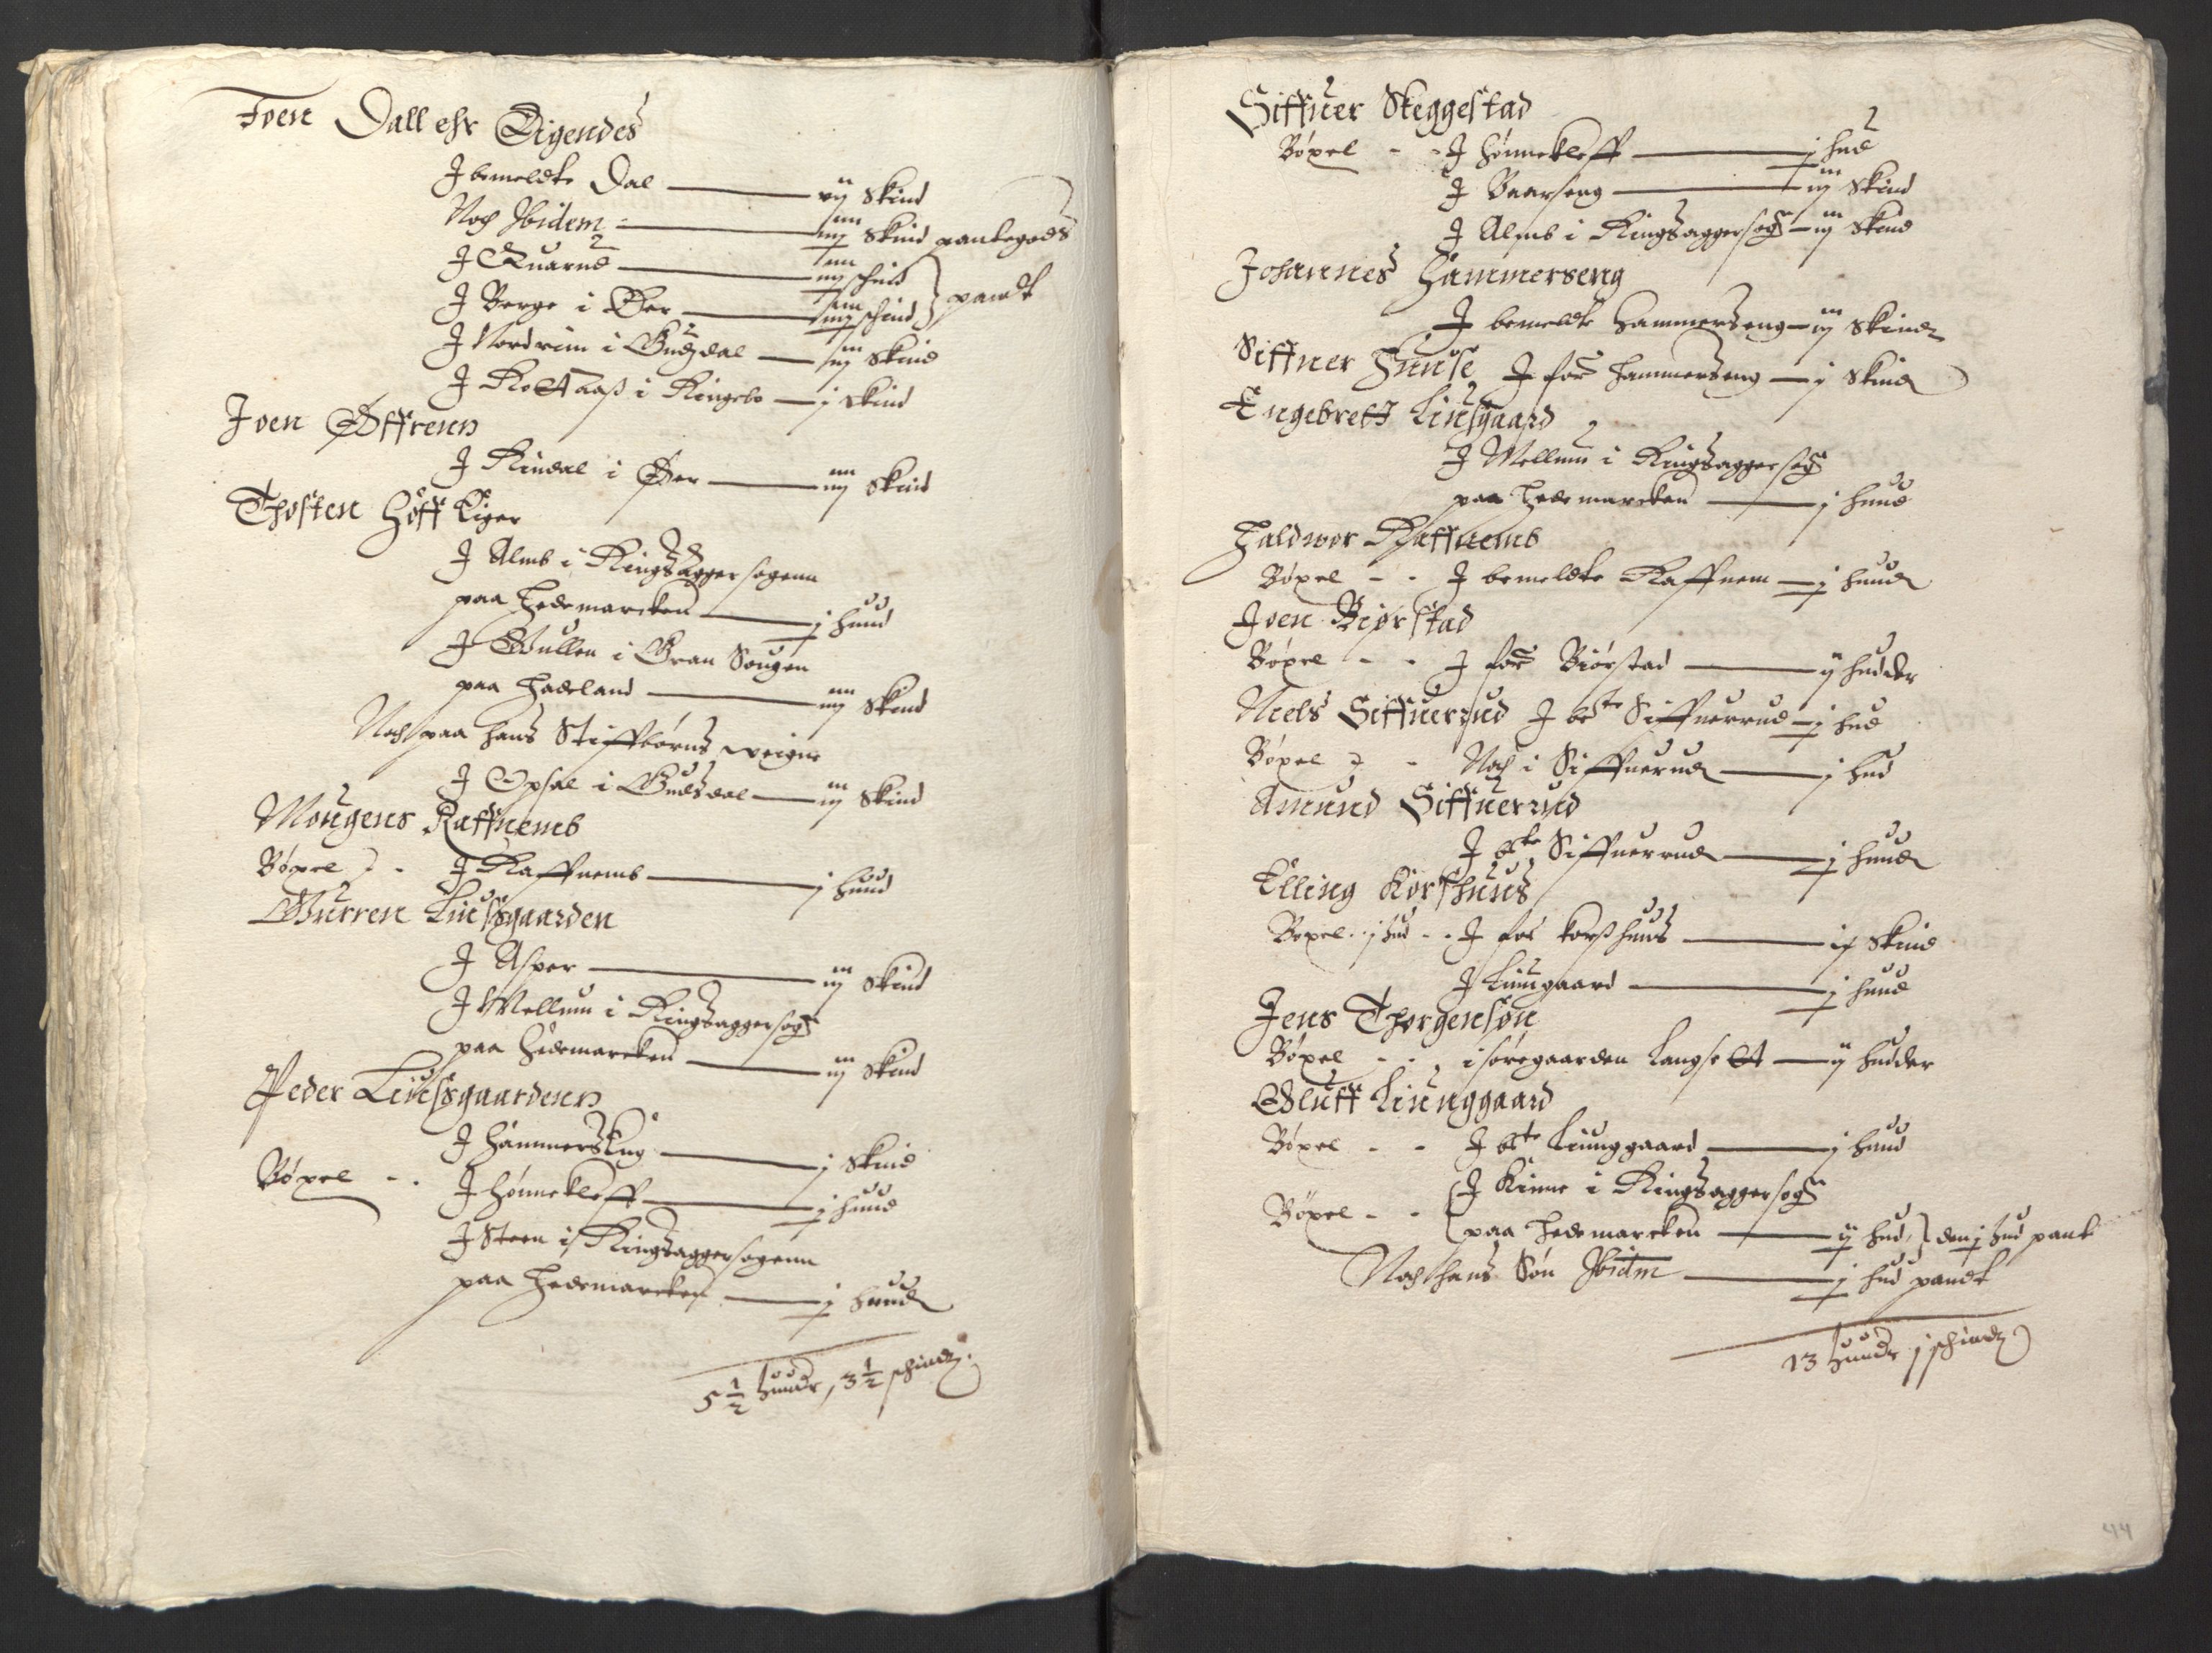 Joen Dall ehr Eigendes
J bemeldte Dal — vij Skind
Noch Ibidem — iiij Skind pantegods
J Quarne — iiij schind
J Berge i Øer — iiij schind } pandt
J Nordrim i Gudzdal — iij Skind
J Kostaaß i Ringebo — j skind
Joen Øffrenn
J Rindal i Øer — iiij Skind
Thosten Hoff Eiger
J Almb i Ringsagger sogenn
paa Hedemarcken — j huud
J Gullen i Gran Sougen
paa Hadeland — iiij Skind
Noch paa hans Stiffbørns weigne
J Opsal i Gudsdal — iij Skind
Mougens Raffnemb
Bøxel - J Raffnemb — j huud
Gurren Liusgaarden
J Asper — iij Skind
J Mellum i Ringsagger sog
paa Hedemarcken — iij Skind
Peder Liusgaardenn
J Hammerseng — j Skind
Bøxel - - J Hønnekleff — j huud
J Steen i Ringsagger sogenn
paa Hedemarcken — j huud
5 1/2 huuder, 3 1/2 schindz.
Siffuer Skeggestad
Bøxel - - J Hønnekleff — j hud
J Baarseng — iij Skind
J Almb i Ringsagger sog — iij Skind
Johannes Hammerseng
J bemeldte Hammerseng — iij Skind
Siffuer Huuse J for Hammerseng — j Skind
Engebrett Liusgaard
J Mellum i Ringsagger sog
paa Hedemarcken — j huud
Haldwor Raffnemb
Bøxel - - J bemeldte Raffnem — j huud
Joen Biørstad
Bøxel - - J for Biørstad — ij huder
Niels Siffuerrud J bete Siffuerrud — j hud
Bøxel - Noch i Siffuerud — j hud
Amund Siffuerrud
J bte Siffuerrud — j huud
Elling Korshuus
Bøxel - j hud - - J for Korßhuus — ij Skind
J Liungaard — j huud
Jens Thorgensøn
Bøxel - - i søregaarden Langsett — ij huder
Oluff Liunggaard
Bøxel - - J bte Liunggaard — j huud
J Kinne i Ringsagger sog
Bøxel - - paa Hedemarcken — ij hud, } den j hud pant
Noch hans Søn Ibidm — j hud pandt
13 huuder j schindz
44